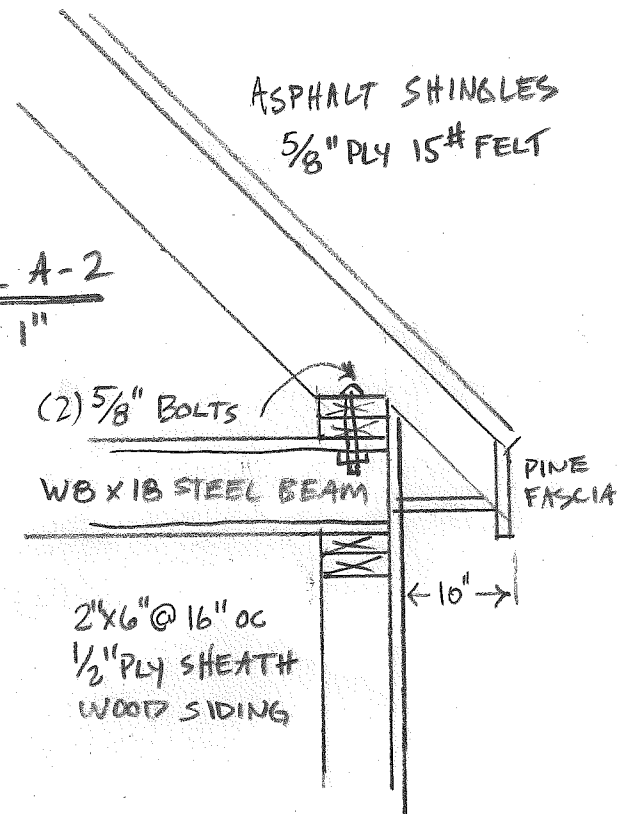 ASPHALT SHINGLES
5/8" PLY 15# FELT
A-2
1"
(2) 5/8" BOLTS
W8 X 18 STEEL BEAM
PINE
FASCIA
10"
2"X6"@ 16" OC
1/2" PLY SHEATH
WOOD SIDING